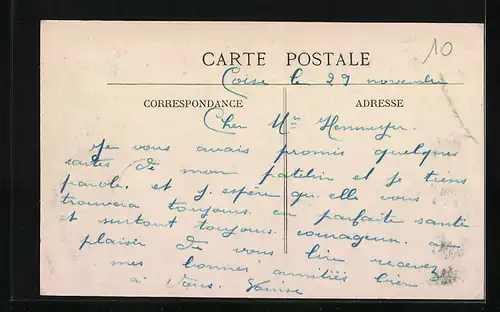 10
CARTE POSTALE
Coise le 29 novembre
CORRESPONDANCE ADRESSE
Cher Mr Hennuyer.
Je vous avais promis quelques
cartes de mon patelin et je tiens
parole. et j. espère qu. elle vous
trouvera toujours. en parfaite santé
et surtout toujours. courageux. au
plaisir de vous lire recevez
mes bonnes amitiés bien
à vous. Louise